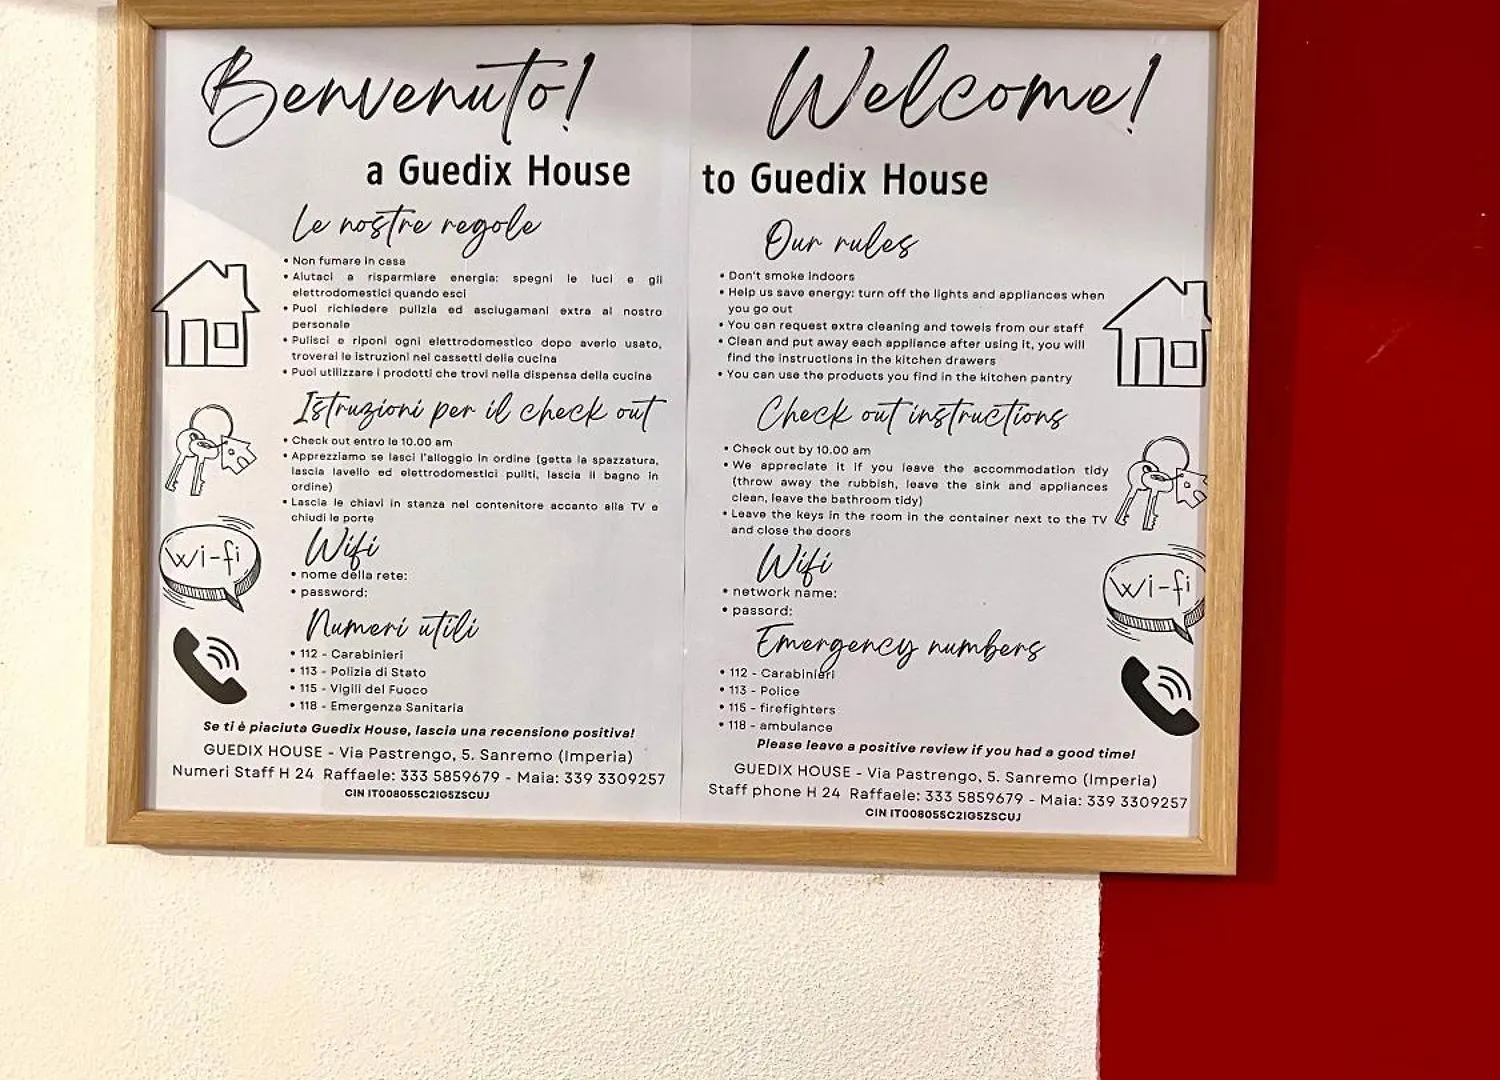 Benvenuto!
a Guedix House
Le nostre regole
• Non fumare in casa
• Aiutaci a risparmiare energia: spegni le luci e gli
elettrodomestici quando esci
• Puoi richiedere pulizia ed asciugamani extra al nostro
personale
• Pulisci e riponi ogni elettrodomestico dopo averlo usato,
troverai le istruzioni nei cassetti della cucina
• Puoi utilizzare i prodotti che trovi nella dispensa della cucina
Istruzioni per il check out
• Check out entro le 10.00 am
• Apprezziamo se lasci l'alloggio in ordine (getta la spazzatura,
lascia lavello ed elettrodomestici puliti, lascia il bagno in
ordine)
• Lascia le chiavi in stanza nel contenitore accanto alla TV e
chiudi le porte
wi-fi
Wifi
• nome della rete:
• password:
Numeri utili
• 112 - Carabinieri
• 113 - Polizia di Stato
• 115 - Vigili del Fuoco
• 118 - Emergenza Sanitaria
Se ti è piaciuta Guedix House, lascia una recensione positiva!
GUEDIX HOUSE - Via Pastrengo, 5. Sanremo (Imperia)
Numeri Staff H 24 Raffaele: 333 5859679 - Maia: 339 3309257
CIN IT008055C2IG5ZSCUJ
Welcome!
to Guedix House
Our rules
• Don't smoke indoors
• Help us save energy: turn off the lights and appliances when
you go out
• You can request extra cleaning and towels from our staff
• Clean and put away each appliance after using it, you will
find the instructions in the kitchen drawers
• You can use the products you find in the kitchen pantry
Check out instructions
• Check out by 10.00 am
• We appreciate it if you leave the accommodation tidy
(throw away the rubbish, leave the sink and appliances
clean, leave the bathroom tidy)
• Leave the keys in the room in the container next to the TV
and close the doors
Wifi
wi-fi
• network name:
• passord:
Emergency numbers
• 112 - Carabinieri
• 113 - Police
• 115 - firefighters
• 118 - ambulance
Please leave a positive review if you had a good time!
GUEDIX HOUSE - Via Pastrengo, 5. Sanremo (Imperia)
Staff phone H 24 Raffaele: 333 5859679 - Maia: 339 3309257
CIN IT008055C2IG5ZSCUJ